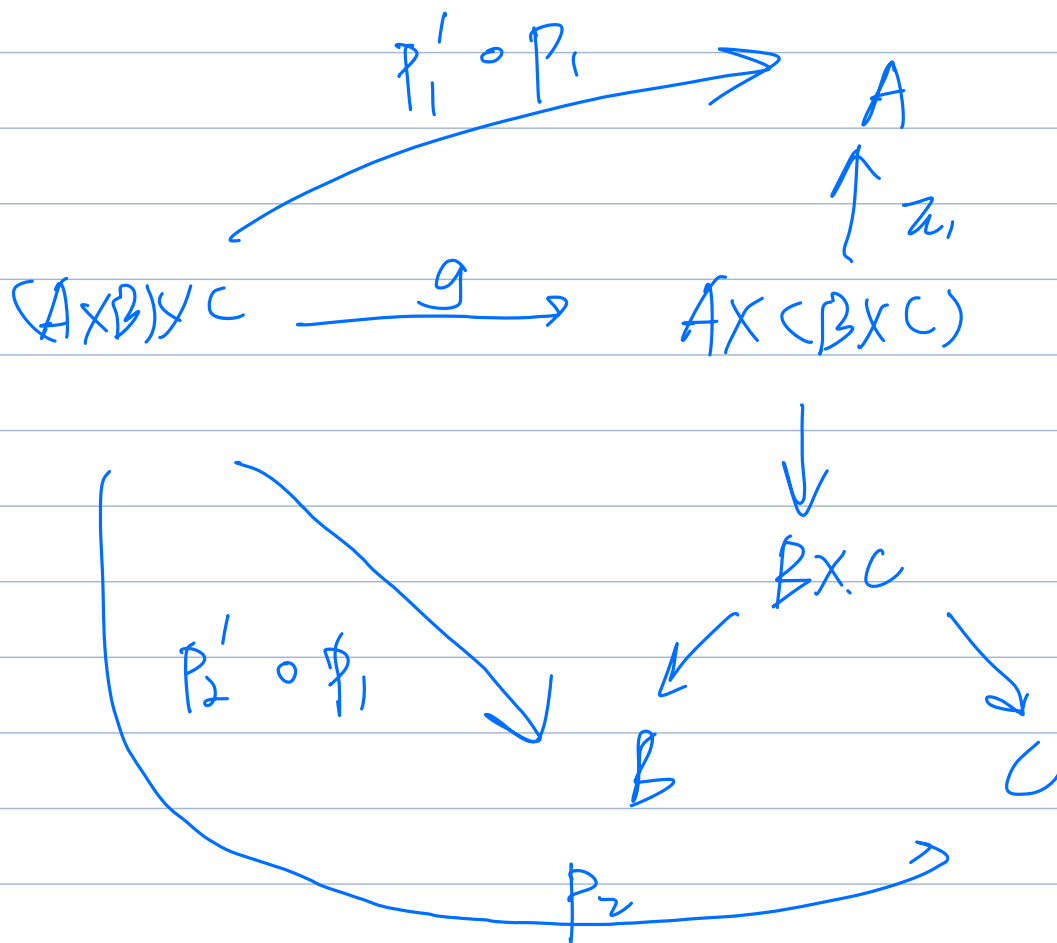 p₁' ∘ p₁
A
π₁
(A×B)×C
g
A×(B×C)
B×C
p₂' ∘ p₁
B
C
p₂